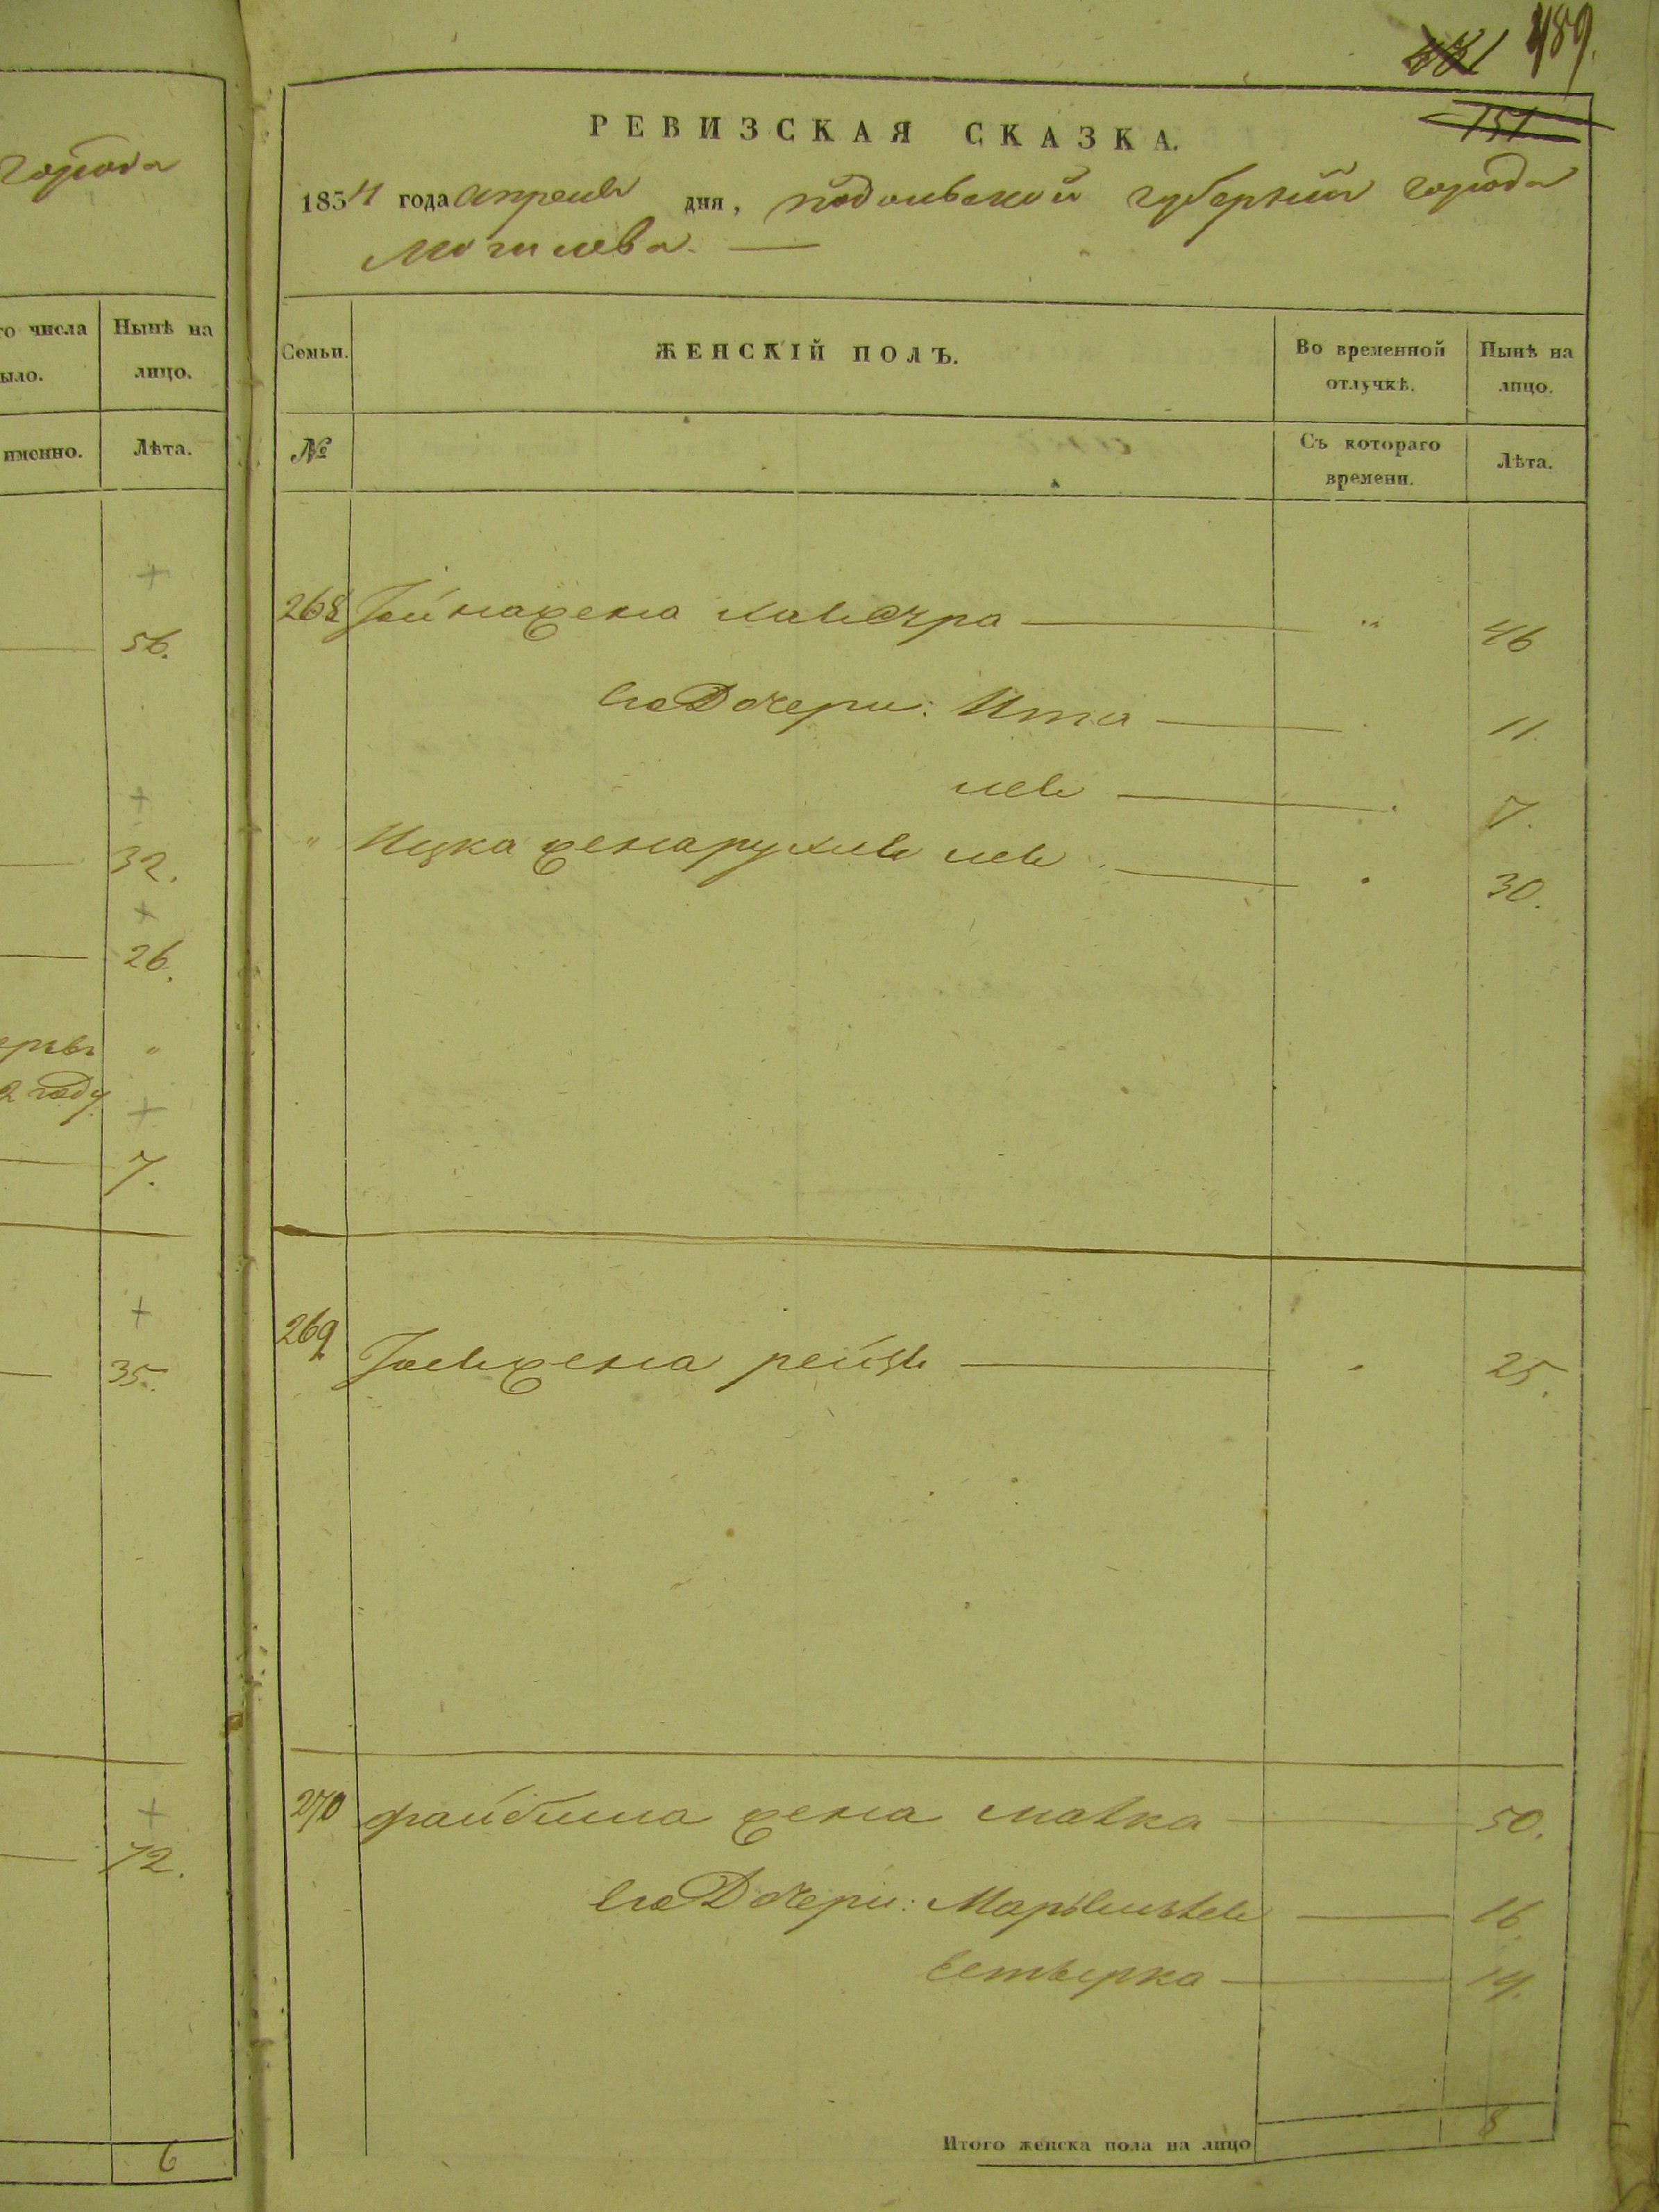 города
го числа
Нынѣ на
ыло.
лицо.
именно.
Лѣта.
56.
32.
26.
"
2 году
7.
35.
72.
6
489.
151
РЕВИЗСКАЯ СКАЗКА.
1854 года апреля дня, подольской губернии города
Могилева.
Семьи.
ЖЕНСКІЙ ПОЛЪ.
Во временной отлучкѣ.
Нынѣ на лицо.
№
Съ котораго времени.
Лѣта.
268 жена 46
его Дочери: Ита 11.
лея 7.
" Ицка жена рухля лея 30.
269 жена рейзя 25.
270 файбиша жена малка 50.
его Дочери: 16.
естерка 14.
Итого женска пола на лицо 8